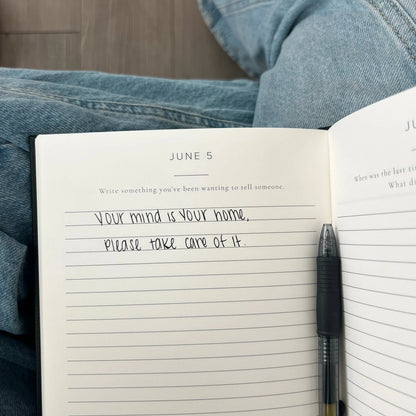 JUNE 5
Write something you've been wanting to tell someone.
Your mind is your home,
Please take care of it.
JU
When was the last ti
What di